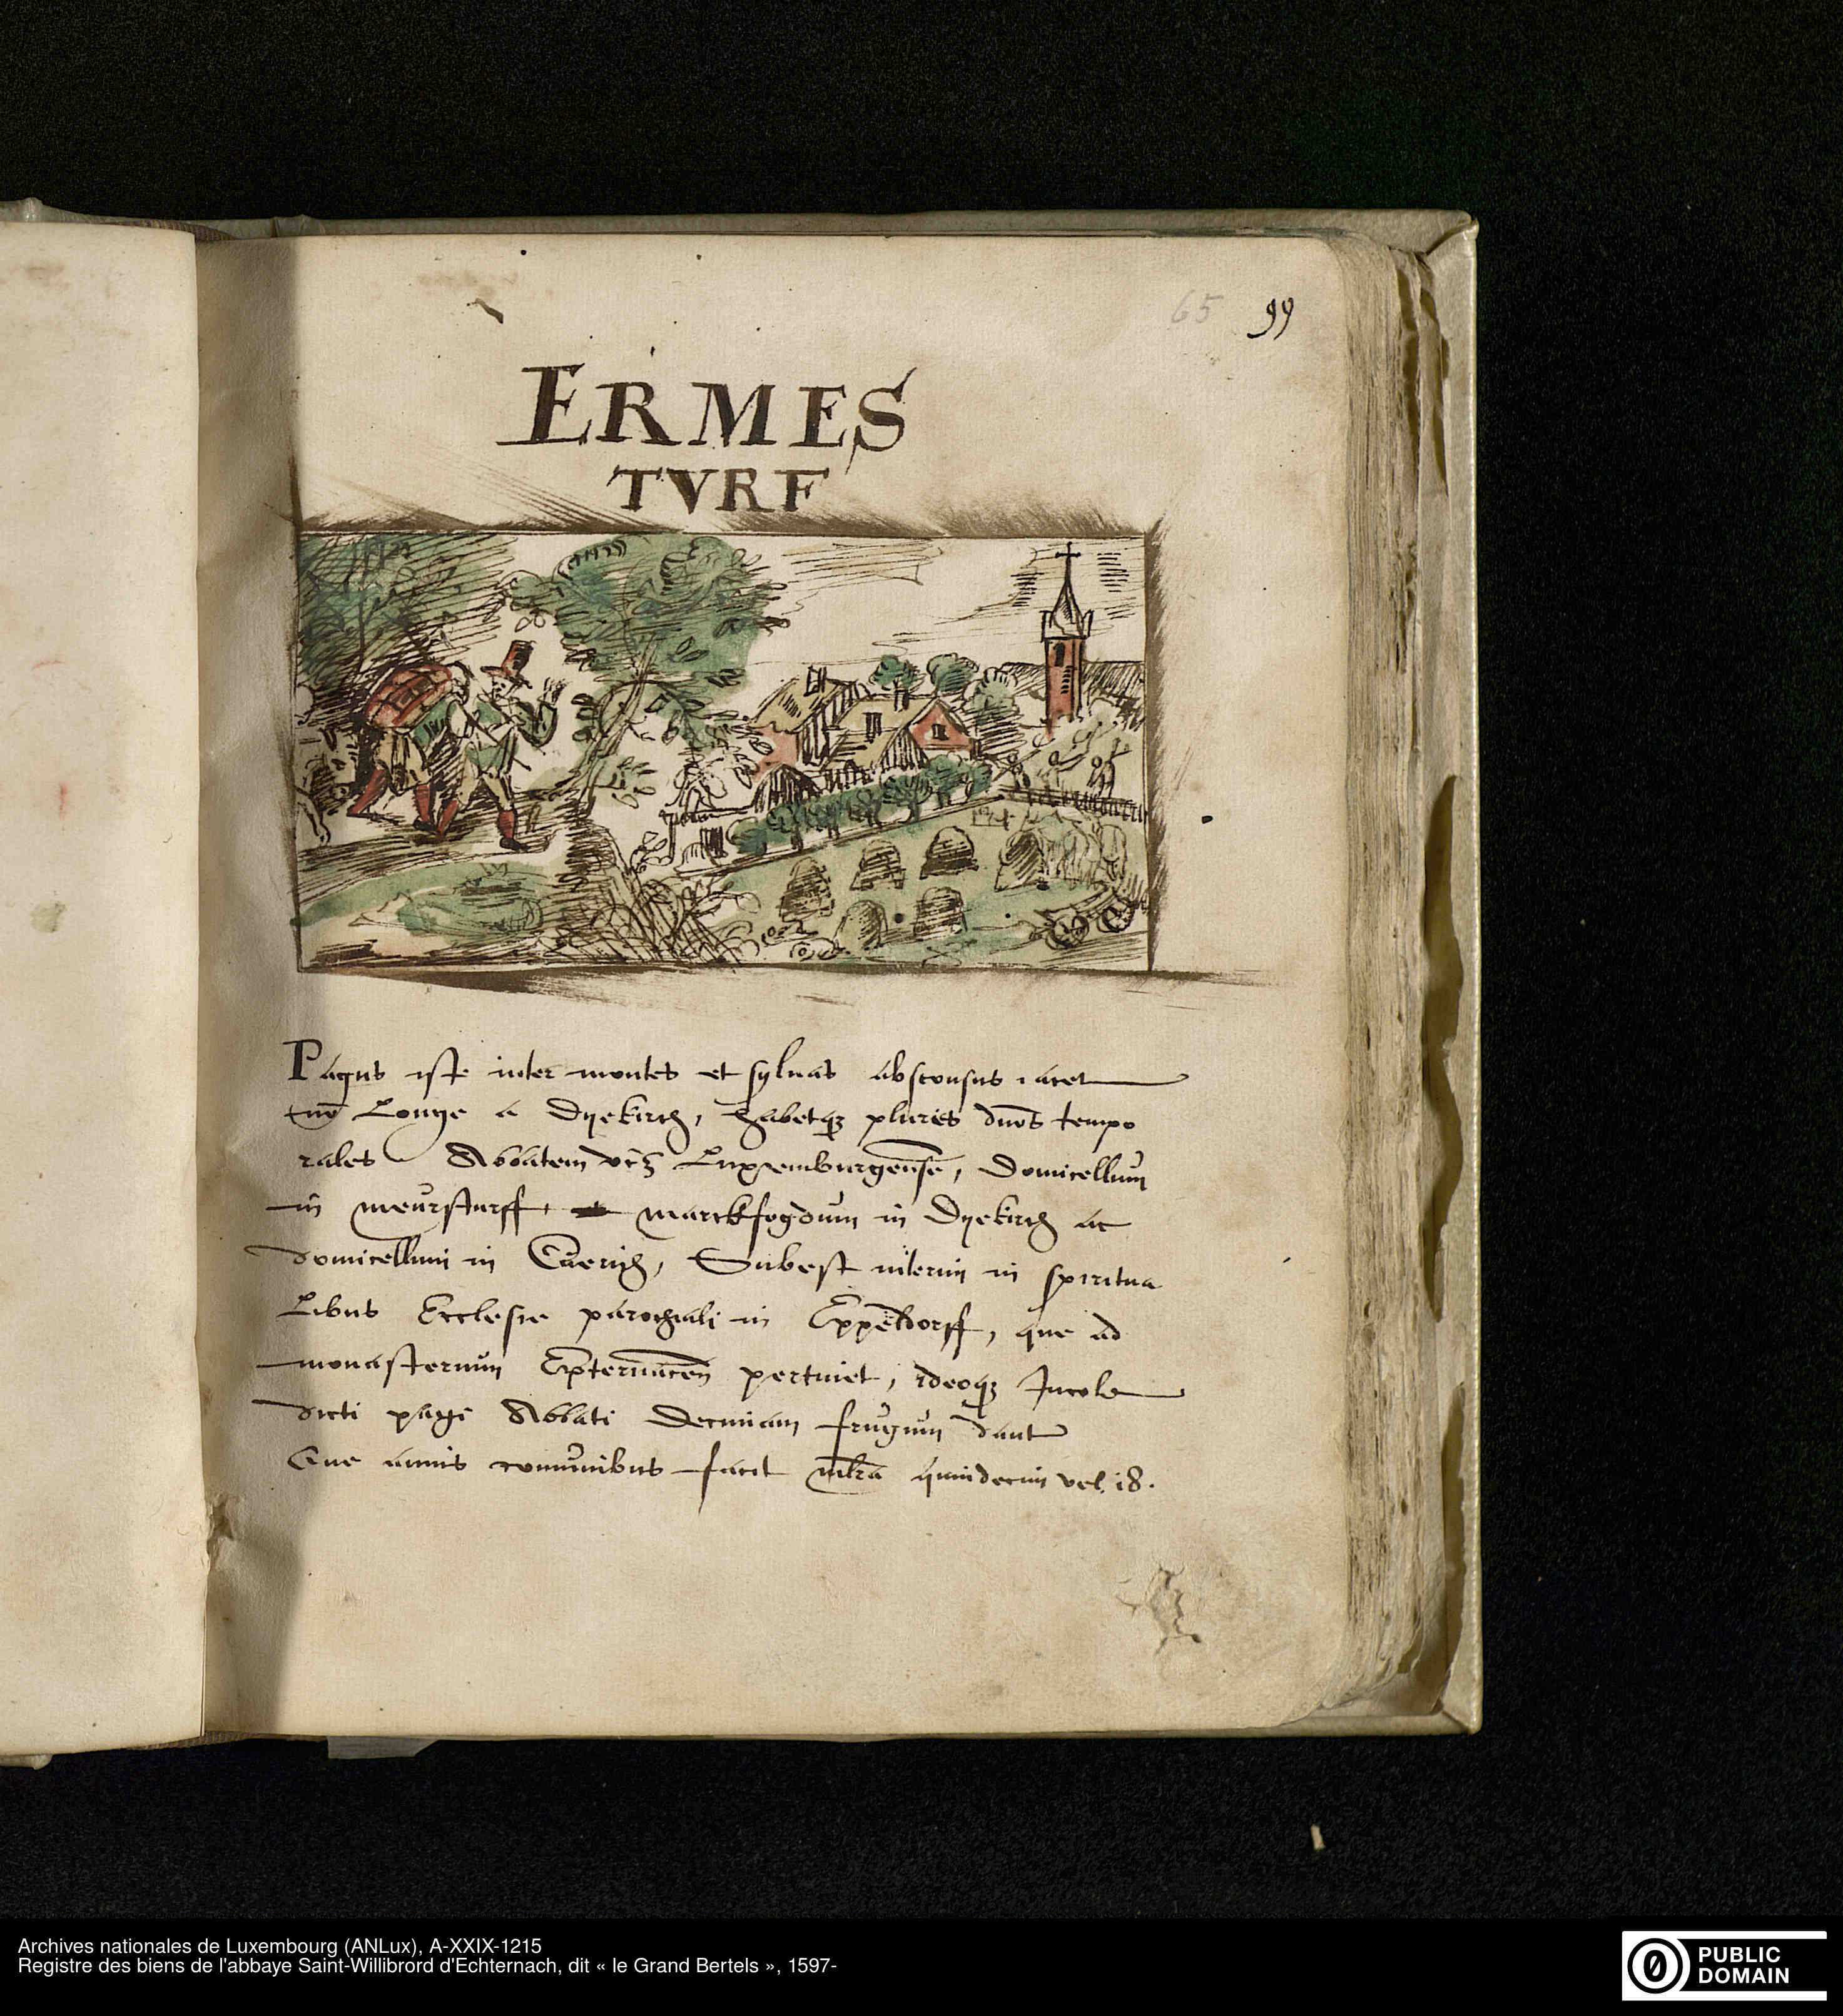 65 99
ERMES
TVRF
Pagus iste inter montes et sylvas absconsus iacet
nõ Longe a Dyekirch, habetqȝ plures dños tempo
rales Abbatem vcȝ Luxemburgensẽ, Domicellum
in meursturff, marckfogdum in Dyekirch ac
domicellum in Everich, Subest interim in spiritua
Libus Ecclesie parochiali in Eppeldorff, que ad
monasterium Epternacen̄ pertinet, ideoqȝ Incole
dicti pagi Abbati Decimam frugum dant
Que annis comunibus facit mlra quindecim vel 18.
Archives nationales de Luxembourg (ANLux), A-XXIX-1215
Registre des biens de l'abbaye Saint-Willibrord d'Echternach, dit « le Grand Bertels », 1597-
PUBLIC
DOMAIN